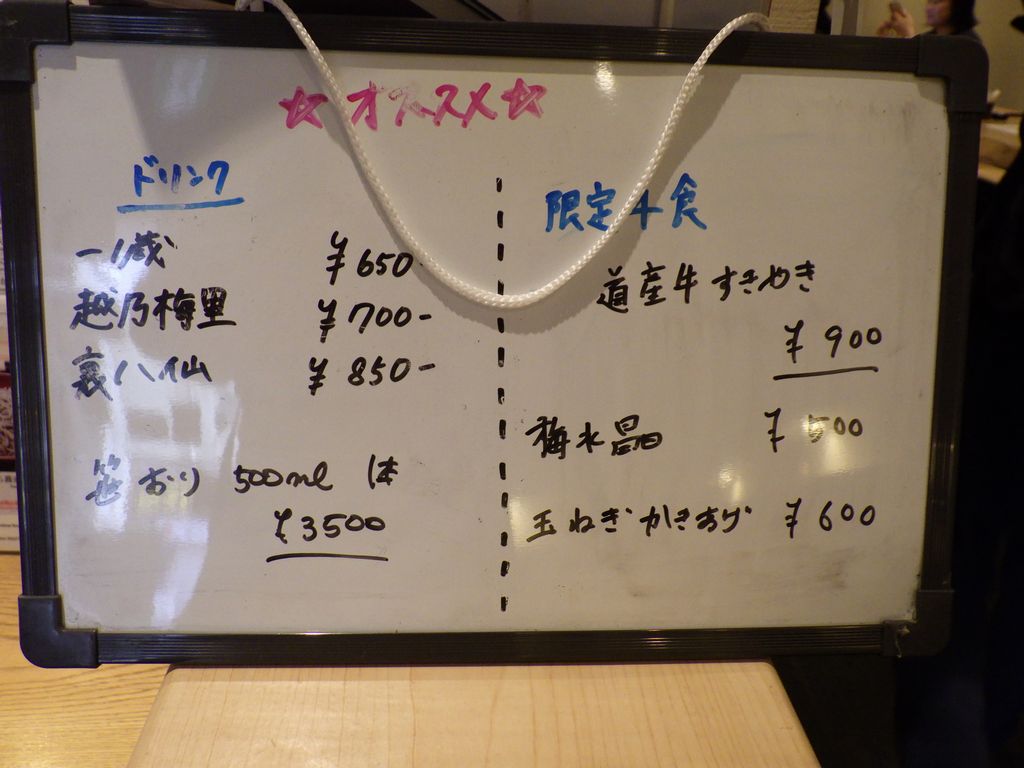 ☆オススメ☆
ドリンク
一ノ蔵 ¥650-
越乃梅里 ¥700-
裏八仙 ¥850-
笹おり 500ml 1本
¥3500
限定4食
道産牛すきやき
¥900
梅水晶 ¥500
玉ねぎかきあげ ¥600